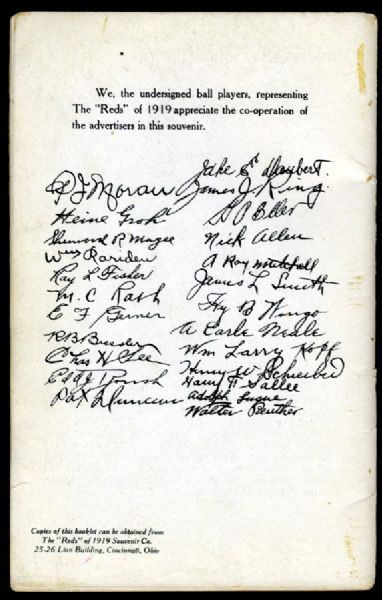 We, the undersigned ball players, representing
The "Reds" of 1919 appreciate the co-operation of
the advertisers in this souvenir.
Jake E Daubert.
P J Moran James J. Ring.
Heine Groh
H O Eller
Sherwood R. Magee
Nick Allen
Wm Rariden
A Roy Mitchell
Ray L Fisher
James L Smith
M. C Rath
Ivy B Wingo
E F Gerner
A Earle Neale
R B Bressler
Wm Larry Kopf
Chas H See
Henry W Schreiber
Edd J Roush
Harry F Sallee
Pat Duncan
Adolph Luque
Walter Reuther
Copies of this booklet can be obtained from
The "Reds" of 1919 Souvenir Co.
25-26 Lion Building, Cincinnati, Ohio